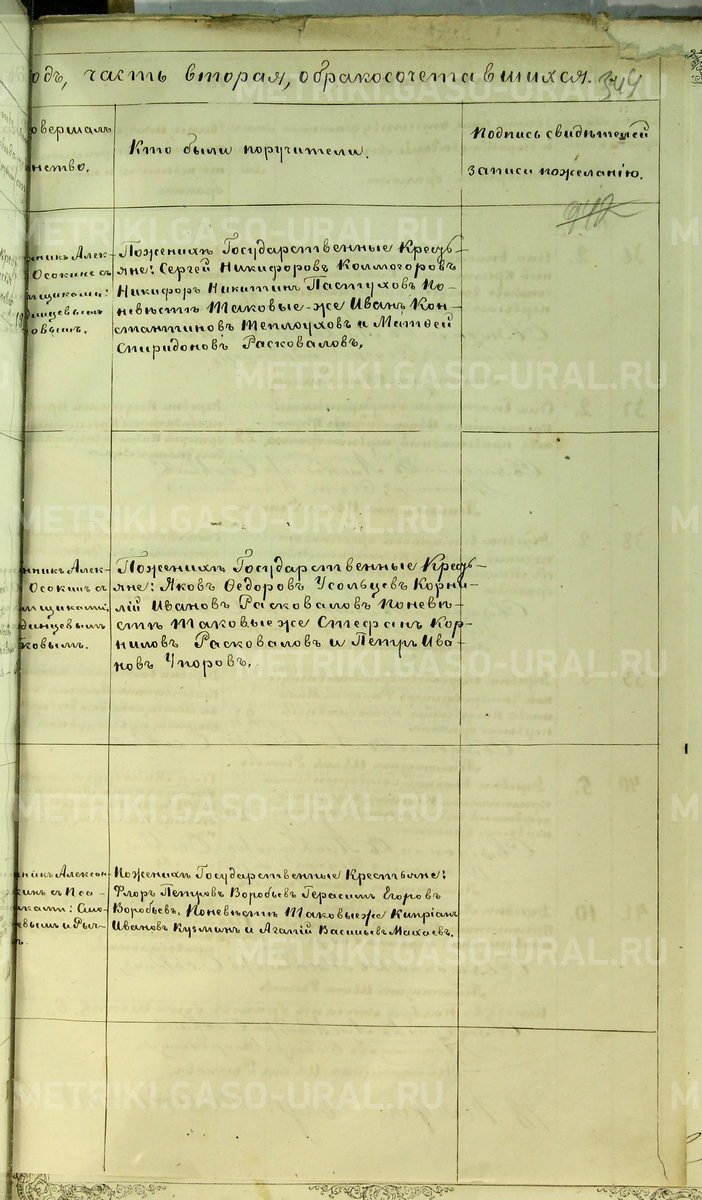 одъ, часть вторая, обракосочетавшихся. 344
овершалъ
нство.
Кто были поручители.
Подпись свидѣтелей
записи пожеланію.
942
нникъ Алек-
Осокинъ съ
щиками:
динцевымъ
овымъ.
Пожениху Государственные Кресть-
яне: Сергей Никифоровъ Колмогоровъ
Никифоръ Никитинъ Пастуховъ По-
невѣстѣ таковые-же Иванъ Кон-
стантиновъ Теплоуховъ и Матвей
Спиридоновъ Расковаловъ.
нникъ Алек-
Осокинъ съ
мщиками:
динцевымъ
ковымъ.
Пожениху Государственные Кресть-
яне: Яковъ Ѳедоровъ Усольцевъ Корни-
лій Ивановъ Расковаловъ Поневѣ-
стѣ таковые же Стефанъ Кор-
ниловъ Расковаловъ и Петръ Ива-
новъ Упоровъ.
никъ Алексан-
кинъ съ Пса-
ками:
евымъ и Рыч-
ъ.
Пожениху Государственные Крестьяне:
Флоръ Петровъ Воробьевъ Герасимъ Егоровъ
Воробьевъ. Поневѣстѣ таковые же Кипріанъ
Ивановъ Кузминъ и Агапій Васильевъ Махаевъ.
METRIKI.GASO-URAL.RU